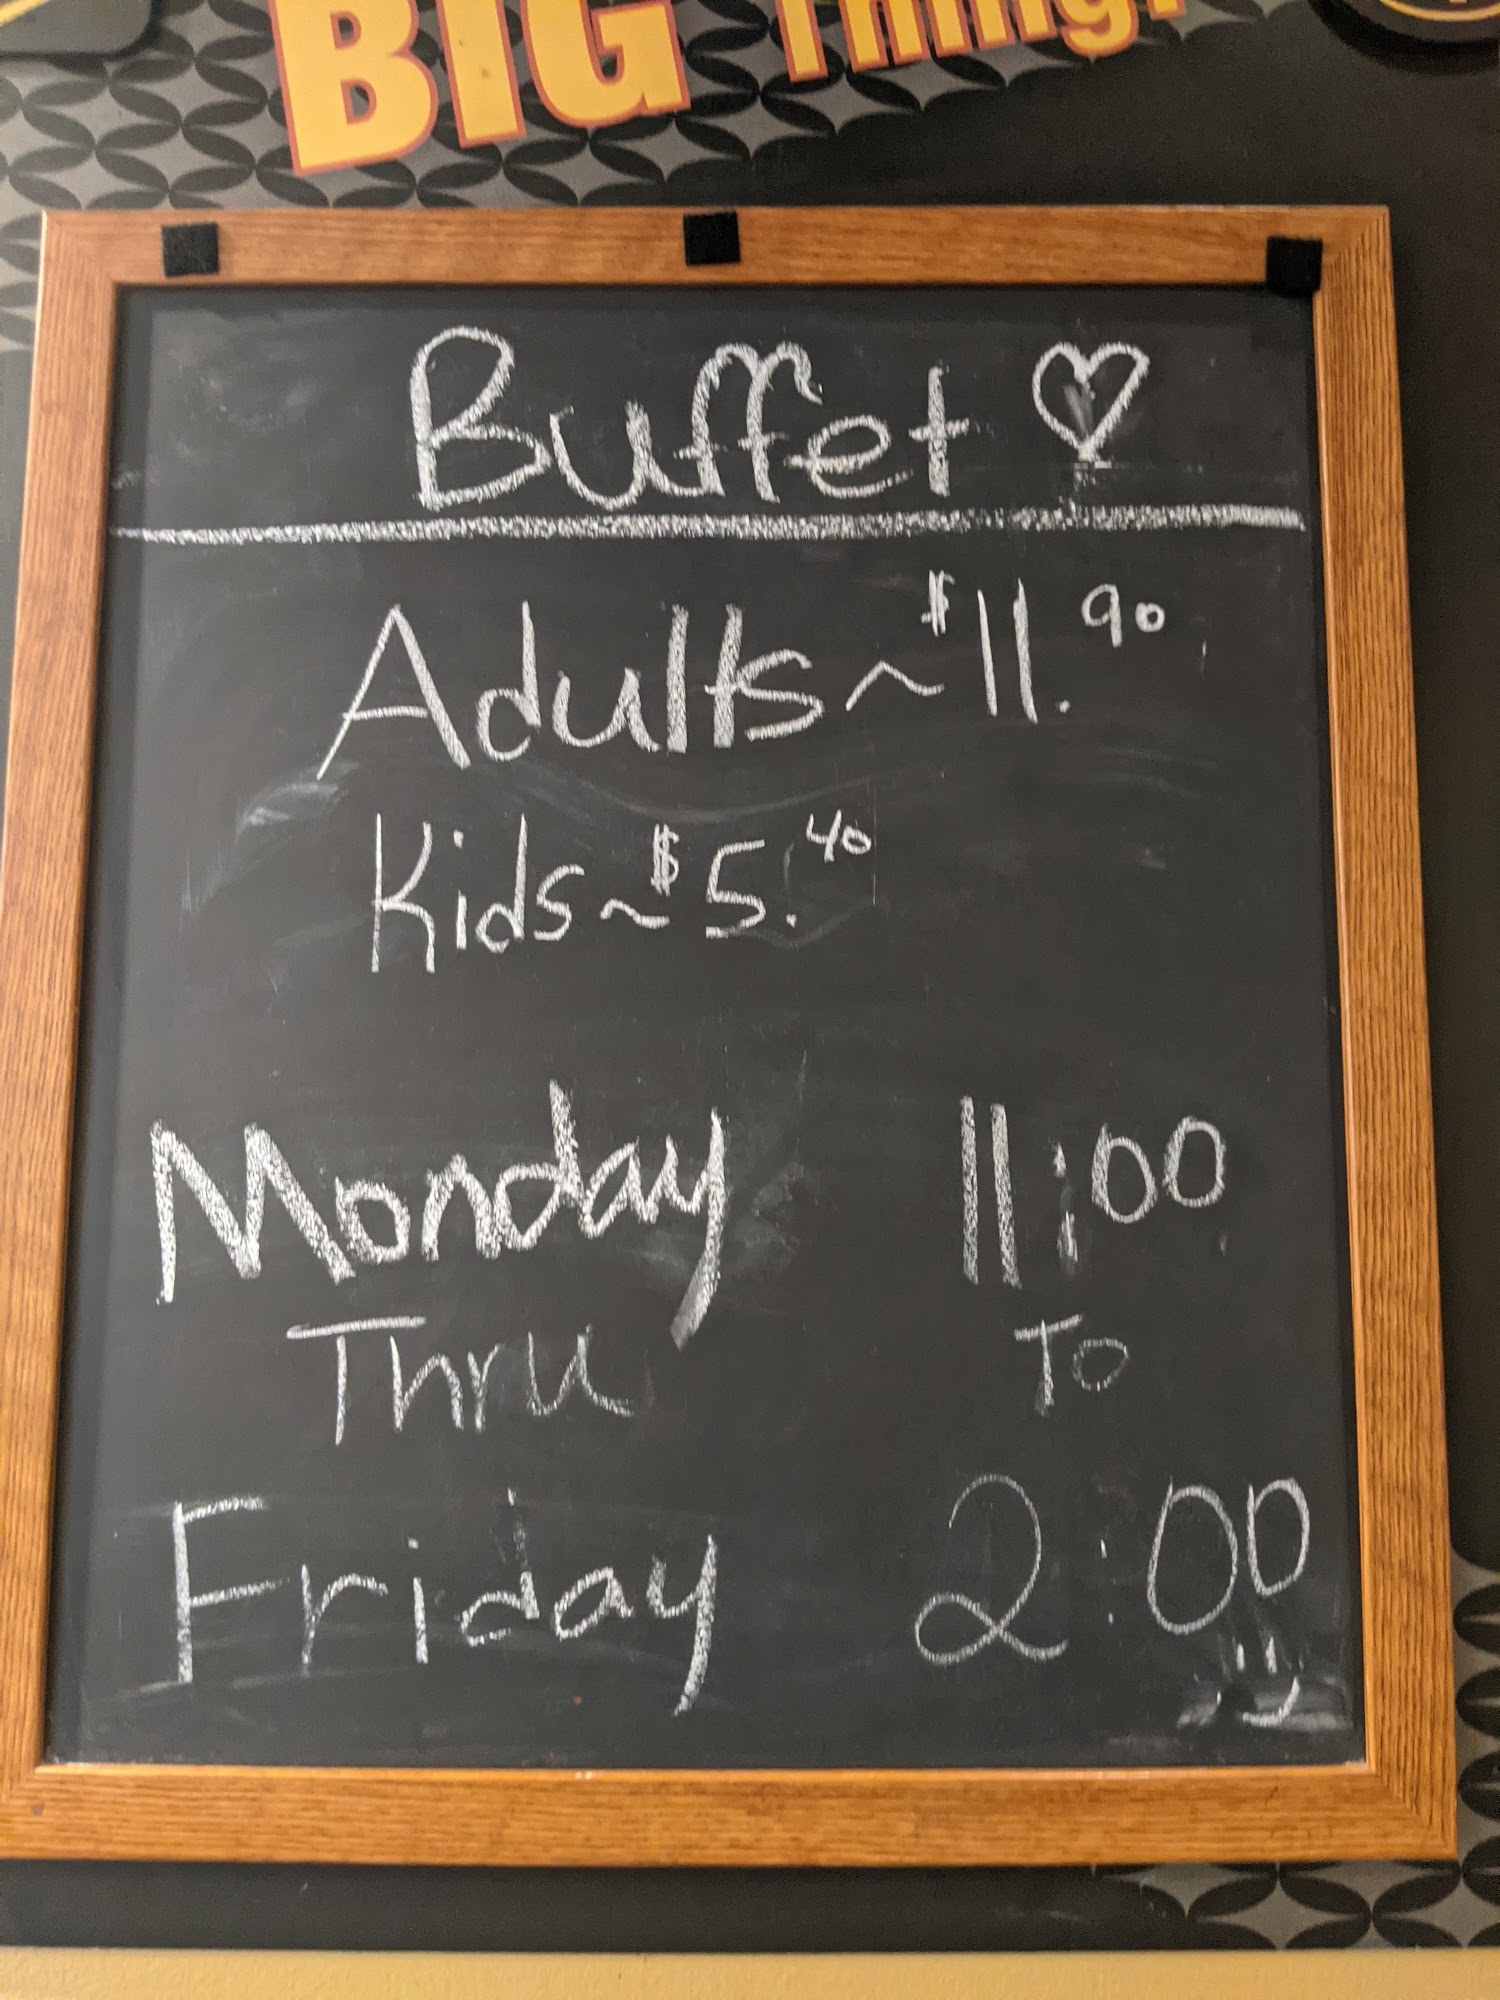 BIG Thing!
Buffet ♡
Adults ~ $11.90
Kids ~ $5.40
Monday 11:00
Thru To
Friday 2:00